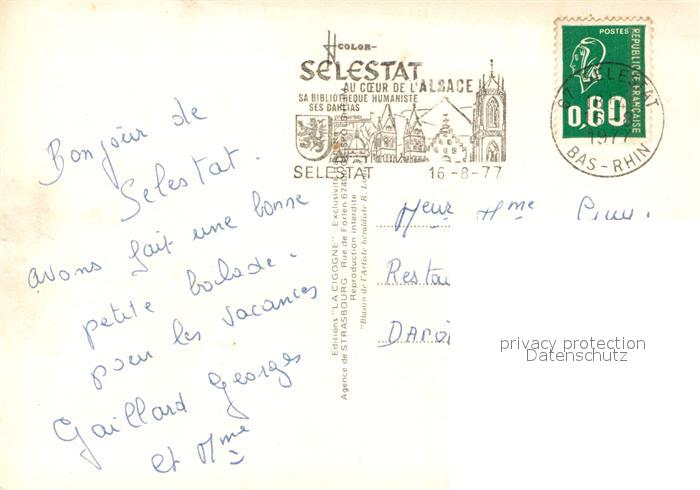 COLOR-
SELESTAT
AU CŒUR DE L'ALSACE
SA BIBLIOTHEQUE HUMANISTE
SES DAHLIAS
SELESTAT 16-8-77
POSTES
REPUBLIQUE FRANÇAISE
0,80
67 SELESTAT
1977
BAS-RHIN
Bonjour de
Selestat.
avons fait une bonne
petite balade.
pour les vacances
Gaillard Georges
et Mme
Editions "LA CIGOGNE" Exclusivité
Agence de STRASBOURG Rue de Forlen 6740
Reproduction interdite
"Blason de l'Artiste héraldiste R. Lo
Meur Mme
Resta
DARO
privacy protection
Datenschutz